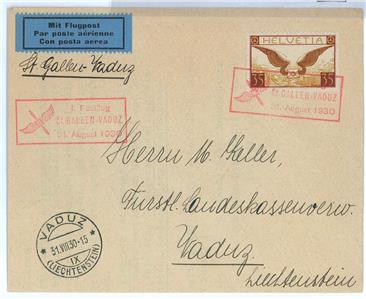 Mit Flugpost
Par poste aérienne
Con posta aerea
St Gallen-Vaduz
HELVETIA
35 35
1. Postflug
ST. GALLEN-VADUZ
31. August 1930
ST. GALLEN-VADUZ
31. August 1930
Herrn M. Keller,
Fürstl. Landeskassenverw.
Vaduz
Liechtenstein
VADUZ
31.VIII.30-15
IX
(LIECHTENSTEIN)